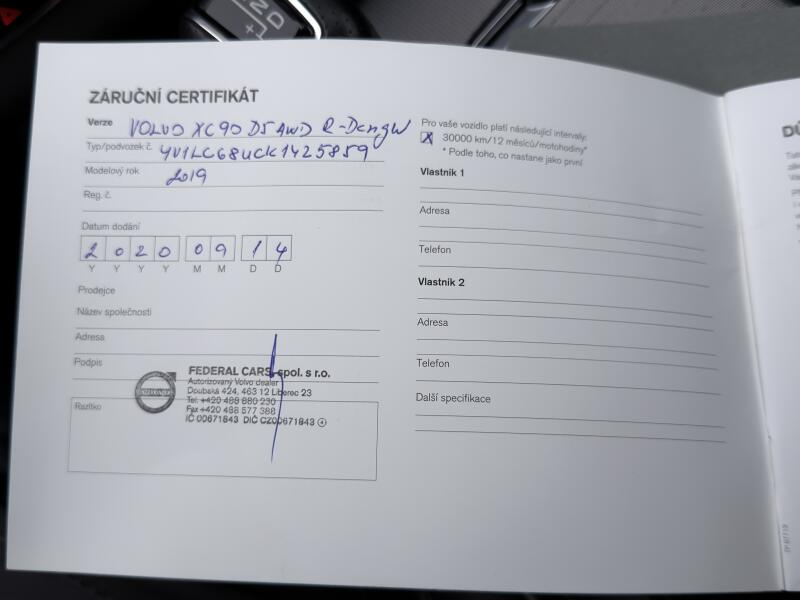 ZÁRUČNÍ CERTIFIKÁT
Verze VOLVO XC90 D5 AWD R-Design
Typ/podvozek č. YV1LC68UCK1425859
Modelový rok 2019
Reg. č.
Datum dodání
2 0 2 0 0 9 1 4
Y Y Y Y M M D D
Prodejce
Název společnosti
Adresa
Podpis
Razítko
VOLVO
FEDERAL CARS, spol. s r.o.
Autorizovaný Volvo dealer
Doubská 424, 463 12 Liberec 23
Tel: +420 488 880 230
Fax +420 488 577 388
IČ 00671843 DIČ CZ00671843 4
Pro vaše vozidlo platí následující intervaly:
X 30000 km/12 měsíců/motohodiny*
* Podle toho, co nastane jako první
Vlastník 1
Adresa
Telefon
Vlastník 2
Adresa
Telefon
Další specifikace